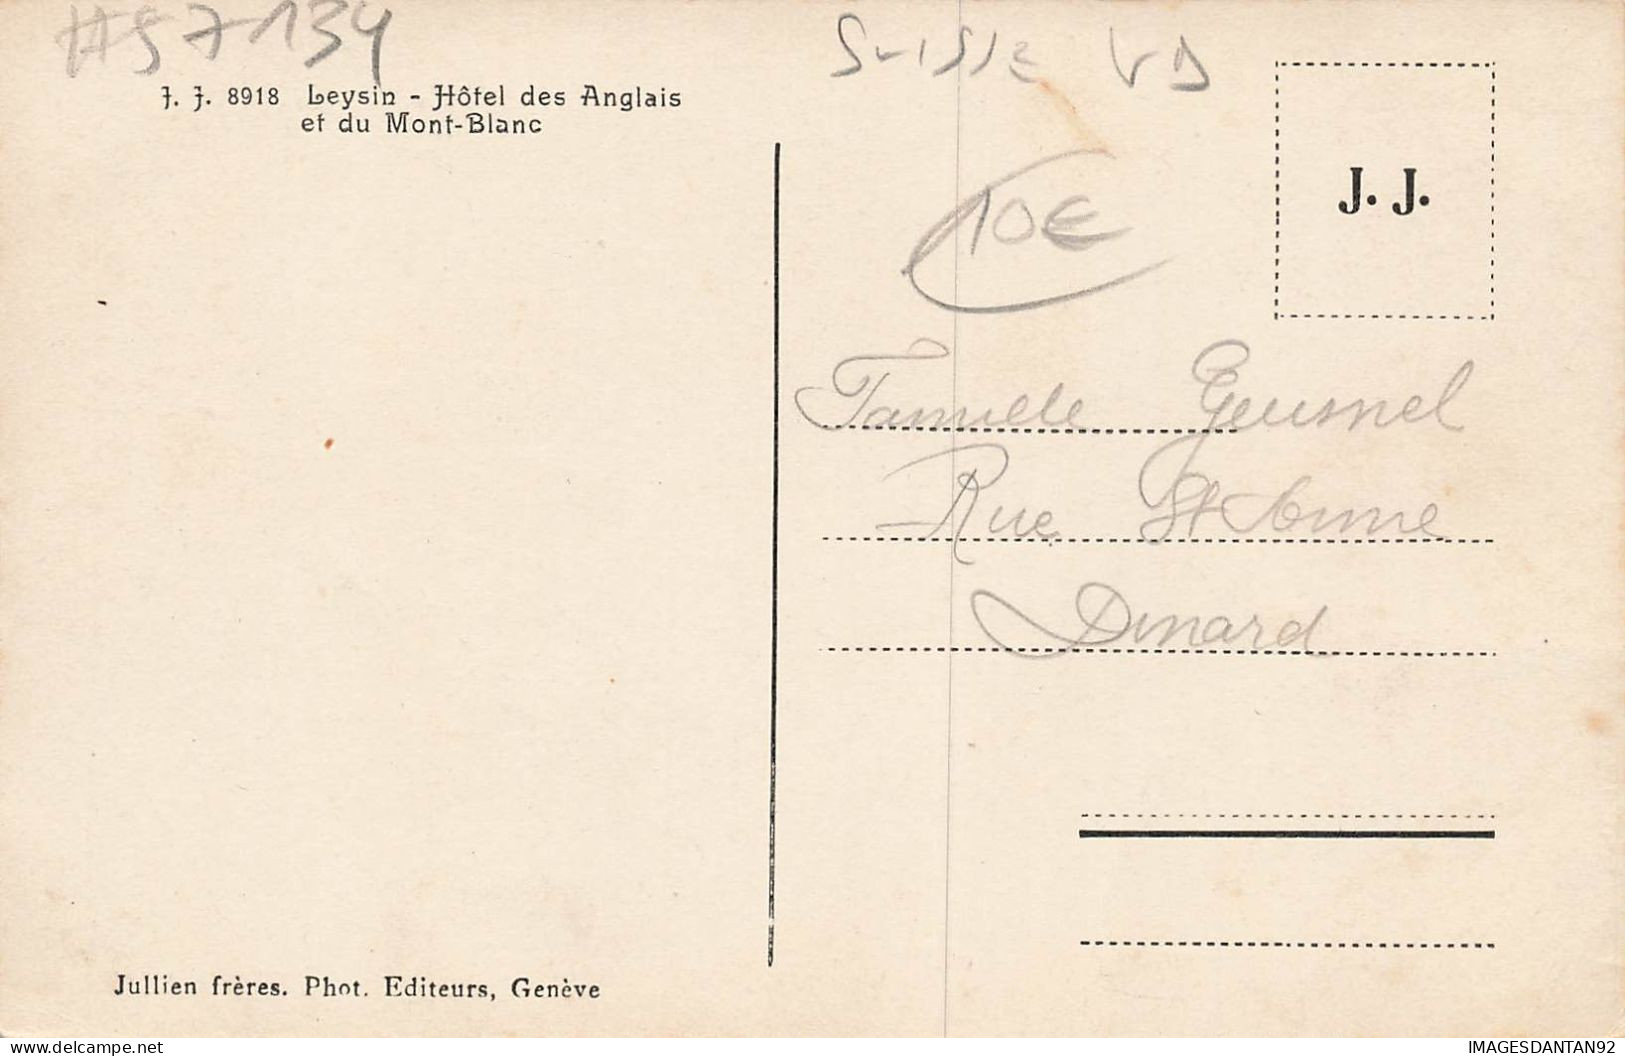 #57134
SUISSE VD
J. J. 8918 Leysin - Hôtel des Anglais
et du Mont-Blanc
J. J.
10€
Rue St Anne
Dinard
Jullien frères. Phot. Editeurs, Genève
IMAGESDANTAN92
www.delcampe.net